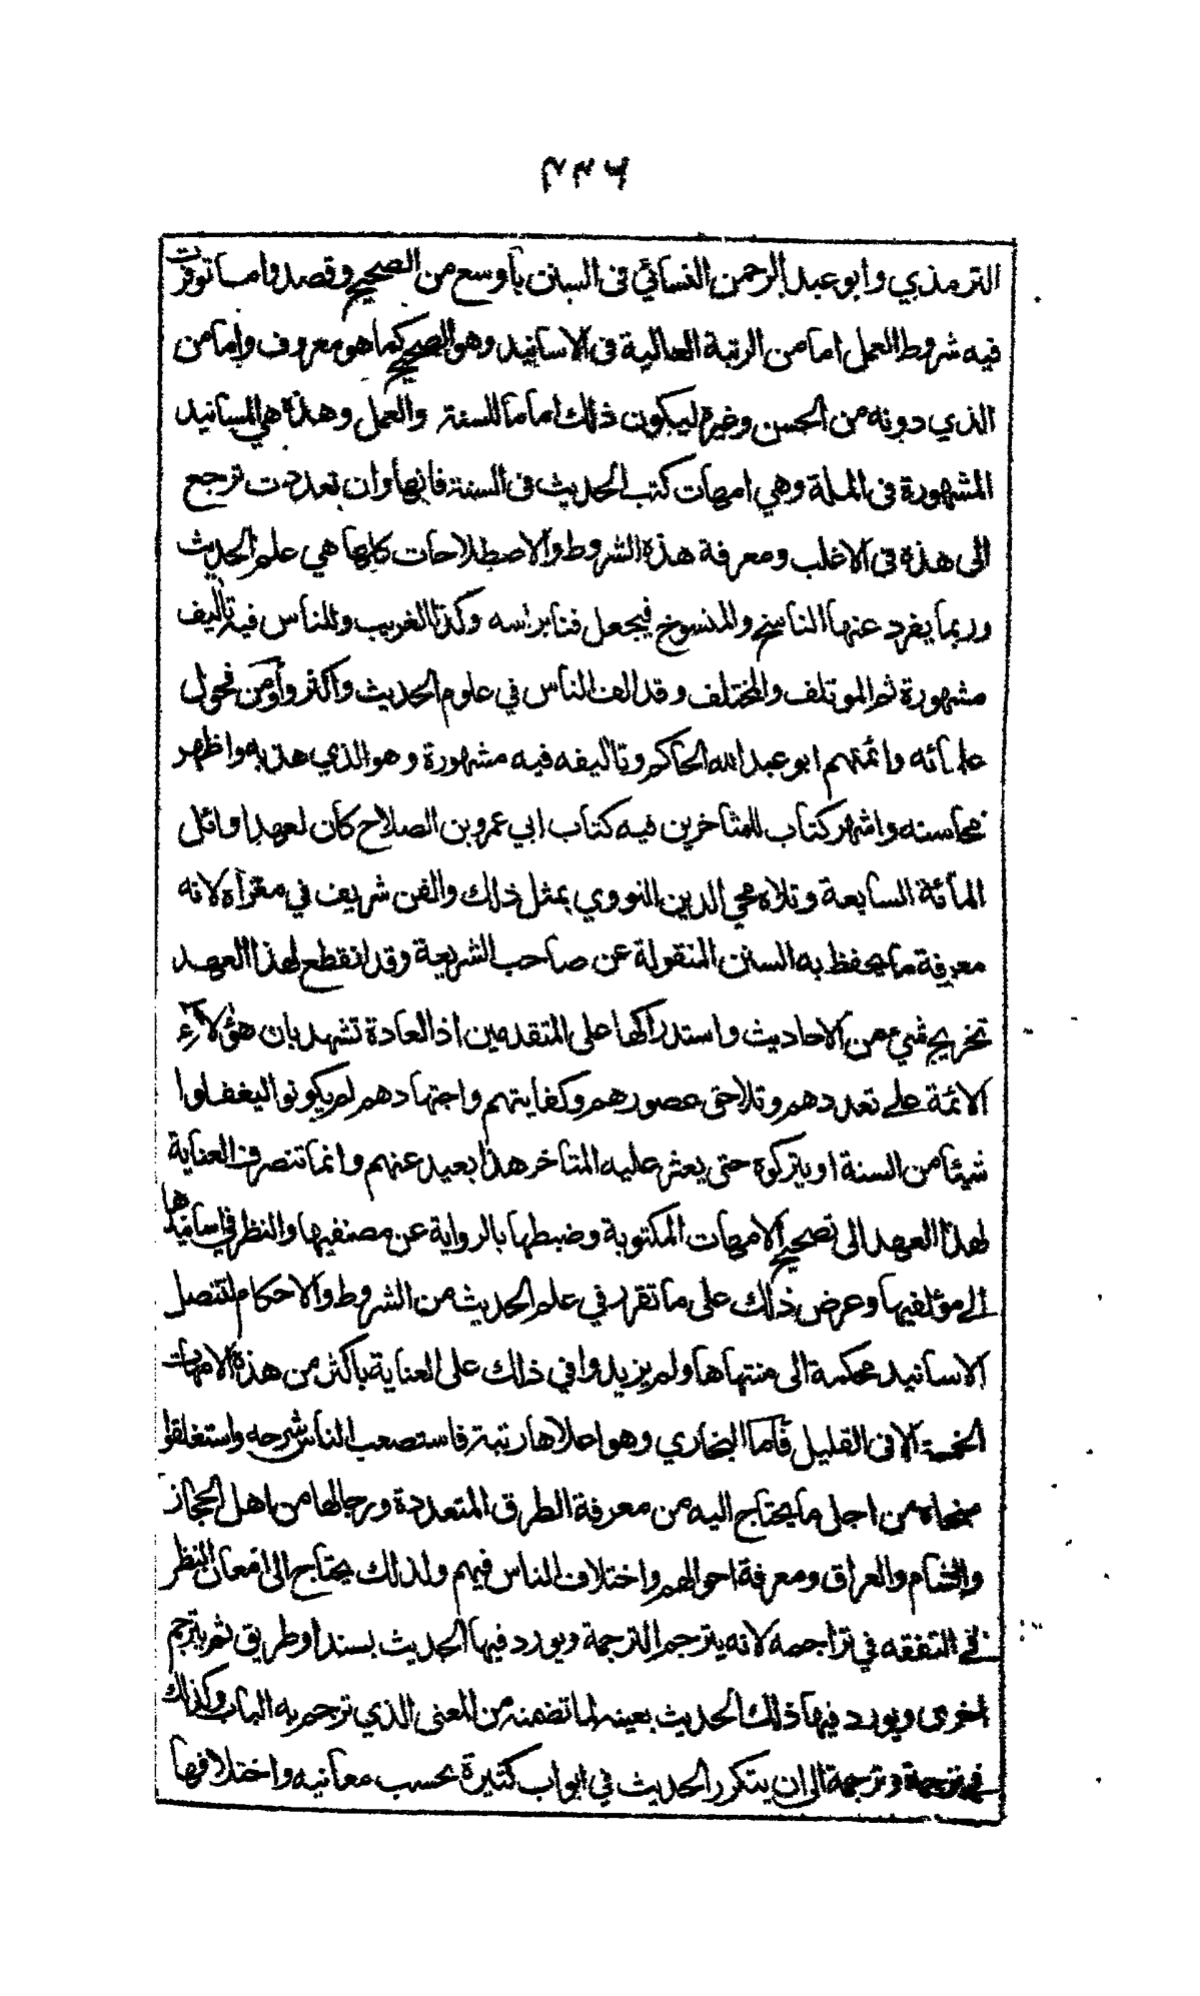 ٢٣٦
الترمذي وابو عبد الرحمن النسائي فى السنن باوسع من الصحيح وقصدوا ما توفرت
فيه شروط العمل اما من الرتبة العالية فى الاسانيد وهو الصحيح كما هو معروف واما من
الذي دونه من الحسن وغيره ليكون ذلك اماما للسنة والعمل وهذه هي المسانيد
المشهورة فى الملة وهي امهات كتب الحديث فى السنة فانها وان تعددت ترجع
الى هذه فى الاغلب ومعرفة هذه الشروط والاصطلاحات كلها هي علم الحديث
وربما يفرد عنها الناسخ والمنسوخ فيجعل فنا براسه وكذا الغريب وللناس فيه تآليف
مشهورة ثم الموتلف والمختلف وقد الف الناس في علوم الحديث واكثروا ومن فحول
علمائه وائمتهم ابو عبد الله الحاكم وتآليفه فيه مشهورة وهو الذي هذبه واظهر
محاسنه واشهر كتاب للمتاخرين فيه كتاب ابي عمرو بن الصلاح كان لعهد اوائل
المائة السابعة وتلاه محي الدين النووي بمثل ذلك والفن شريف في مغزاه لانه
معرفة ما يحفظ به السنن المنقولة عن صاحب الشريعة وقد انقطع لهذا العهد
تخريج شيء من الاحاديث واستدراكها على المتقدمين اذ العادة تشهد بان هؤلاء
الائمة على تعددهم وتلاحق عصورهم وكفايتهم واجتهادهم لم يكونوا ليغفلوا
شيئا من السنة او يتركوه حتى يعثر عليه المتاخر هذا بعيد عنهم وانما تنصرف العناية
لهذا العهد الى تصحيح الامهات المكتوبة وضبطها بالرواية عن مصنفيها والنظر في اسانيدها
الى مؤلفيها وعرض ذلك على ما تقرر في علم الحديث من الشروط والاحكام لتتصل
الاسانيد محكمة الى منتهاها ولم يزيدوا في ذلك على العناية باكثر من هذه الامهات
الخمسة الا فى القليل فاما البخاري وهو اعلاها رتبة فاستصعب الناس شرحه واستغلقوا
منحاه من اجل ما يحتاج اليه من معرفة الطرق المتعددة ورجالها من اهل الحجاز
والشام والعراق ومعرفة احوالهم واختلاف الناس فيهم ولذلك يحتاج الى امعان النظر
في التفقه في تراجمه لانه يترجم الترجمة ويورد فيها الحديث بسند او طريق ثم يترجم
اخرى ويورد فيها ذلك الحديث بعينه لما تضمنه من المعنى الذي ترجم به الباب وكذلك
في ترجمة وترجمة الى ان يتكرر الحديث في ابواب كثيرة بحسب معانيه واختلافها